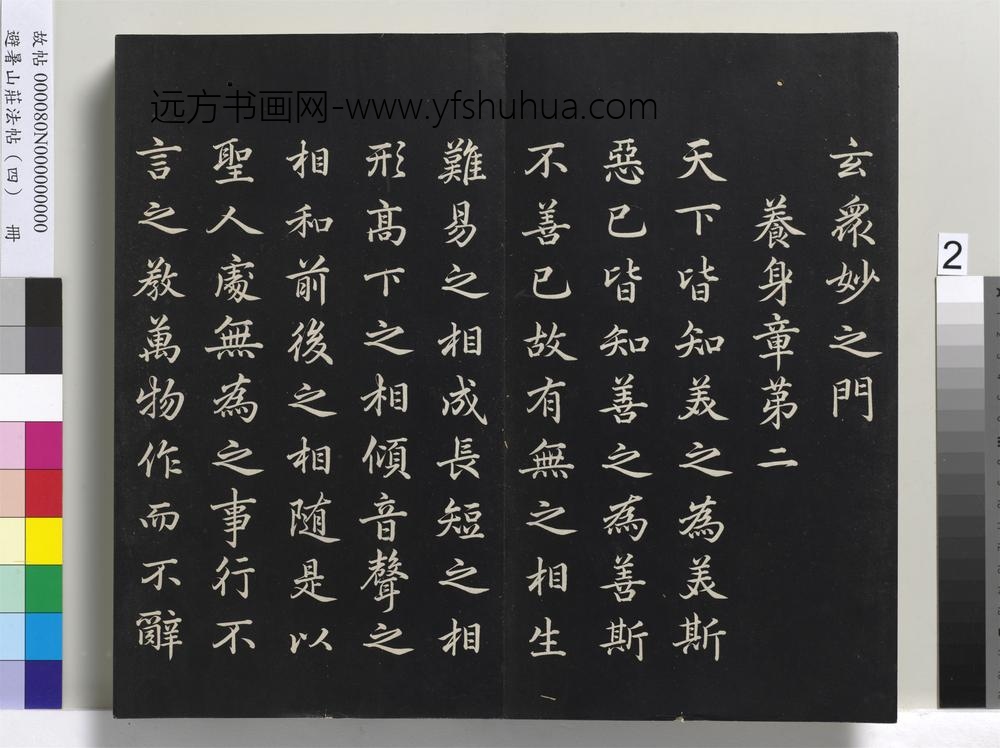 玄衆妙之門
養身章第二
天下皆知美之為美斯
惡已皆知善之為善斯
不善已故有無之相生
難易之相成長短之相
形高下之相傾音聲之
相和前後之相随是以
聖人處無為之事行不
言之教萬物作而不辭
远方书画网-www.yfshuhua.com
故帖 000080N000000000
避暑山莊法帖（四） 冊
2